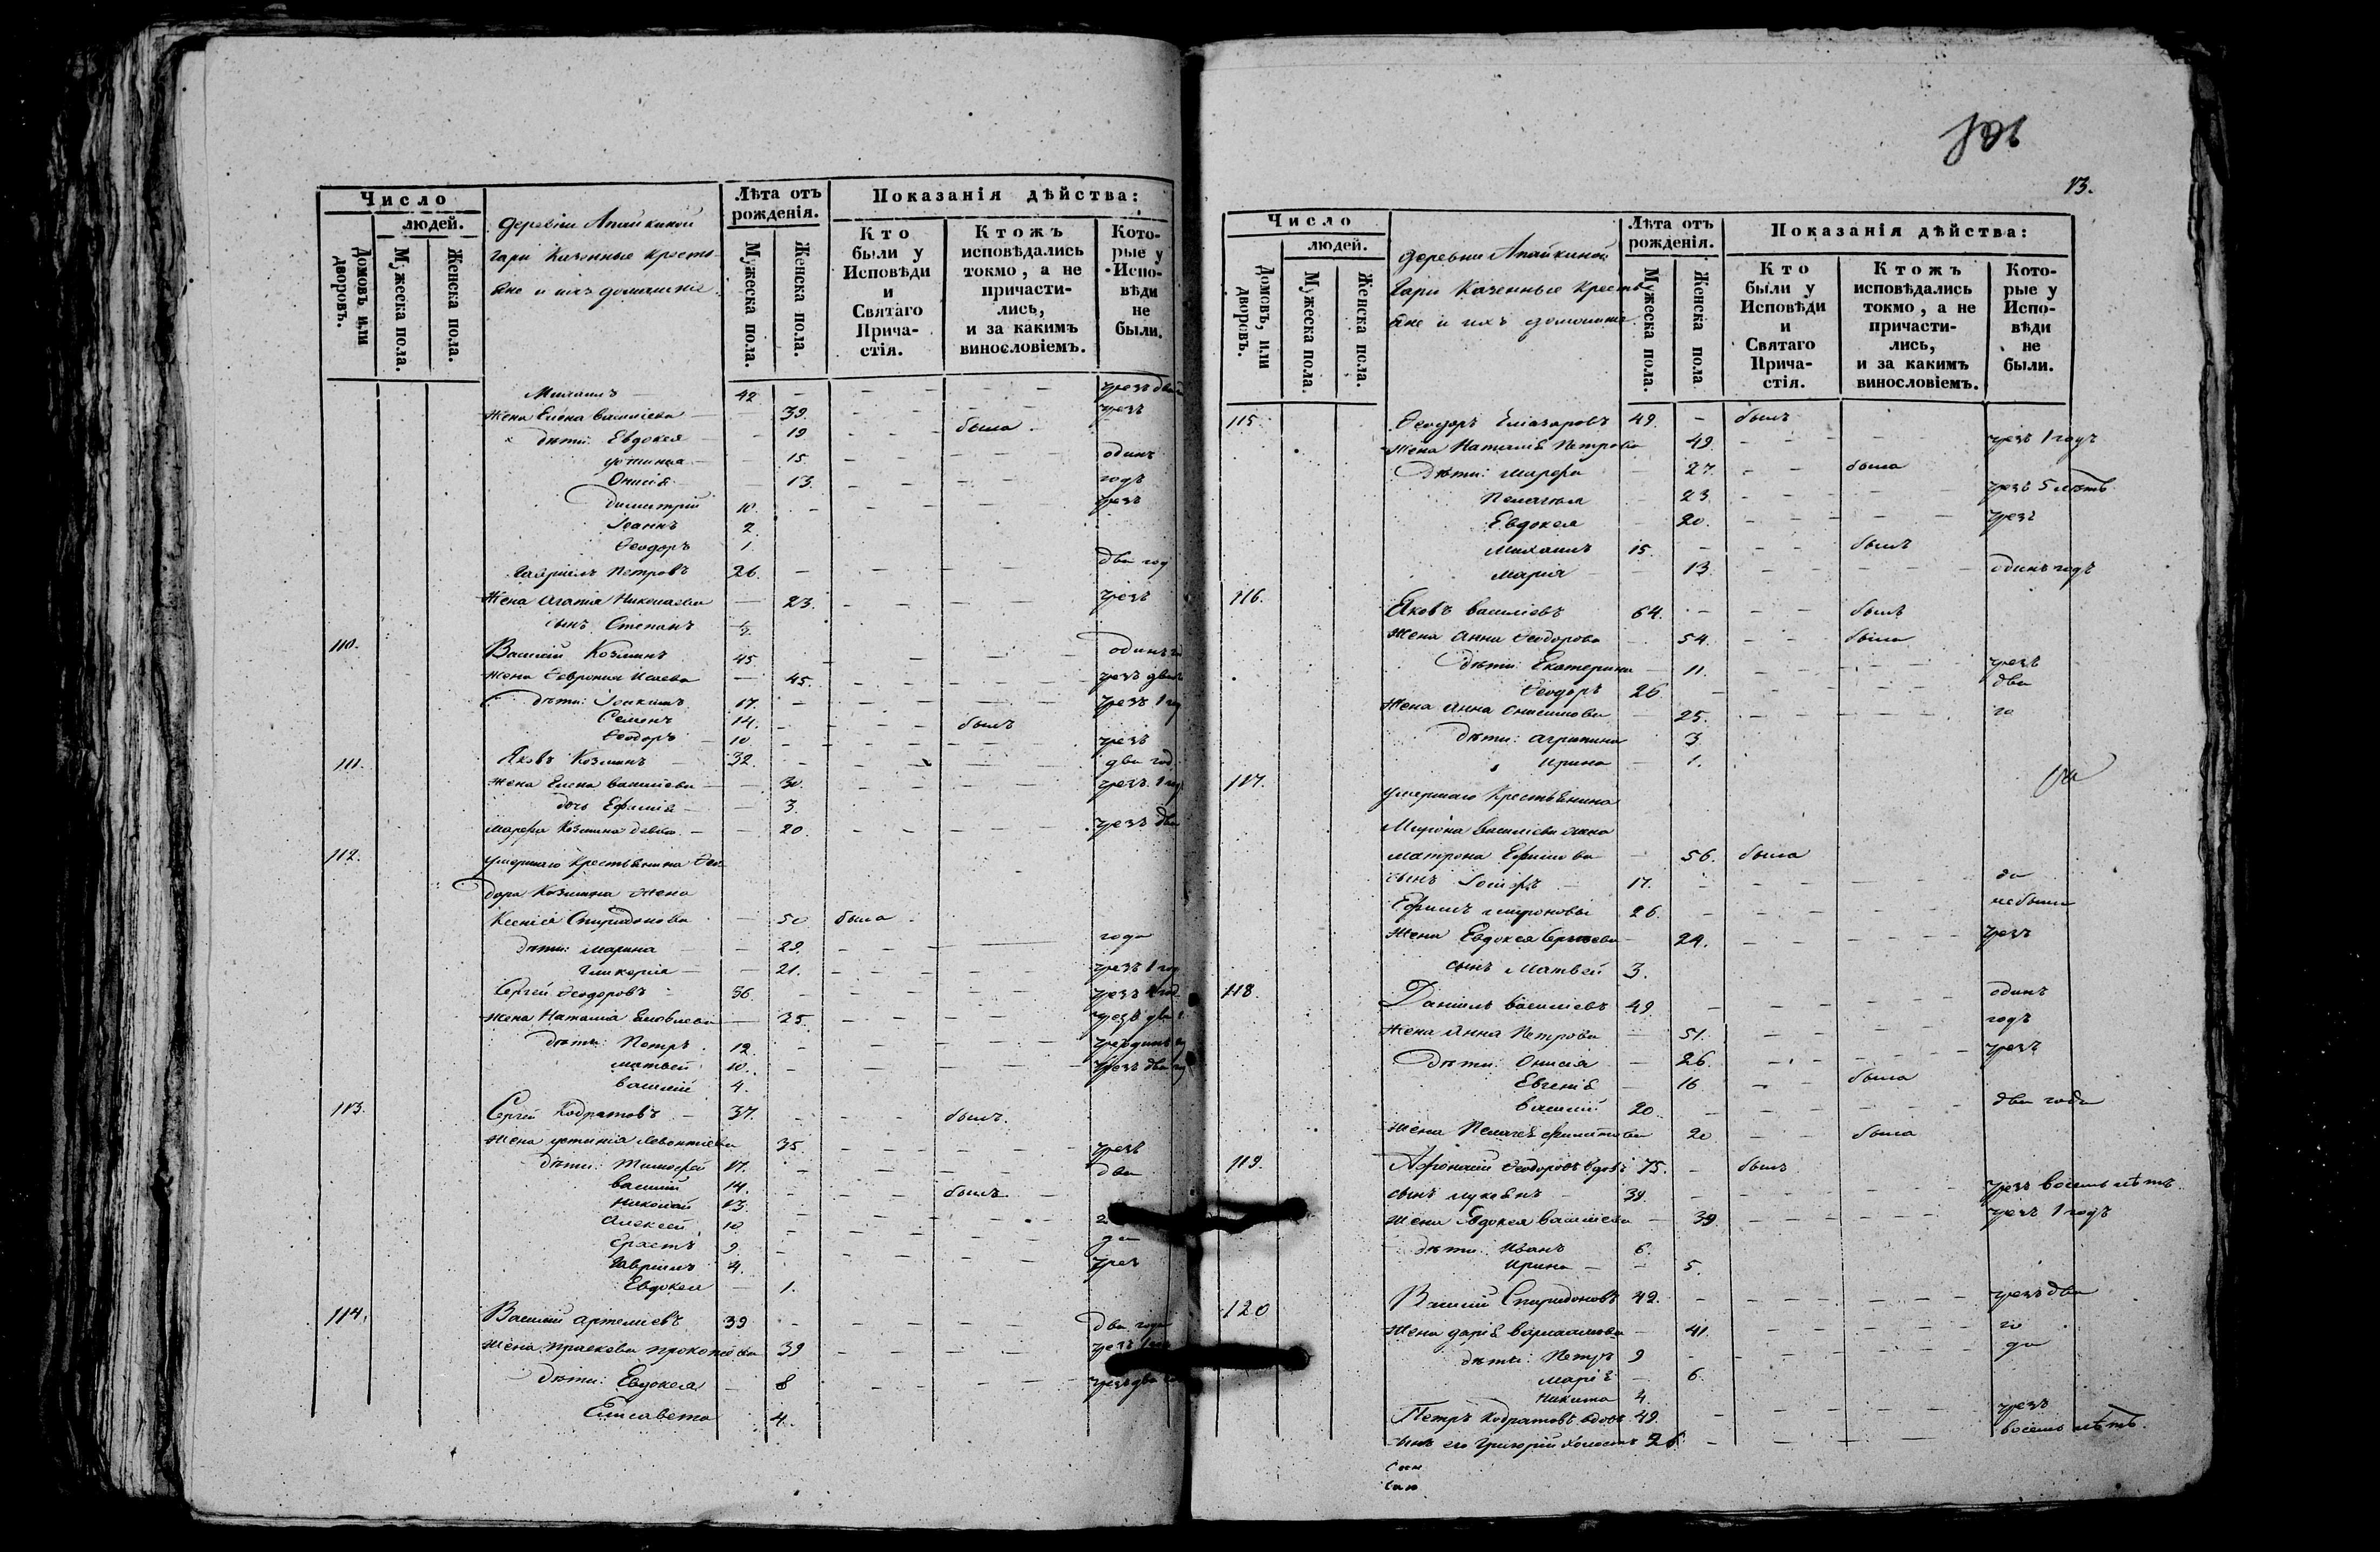 Число
людей.
Домовъ, или дворовъ.
Мужеска пола.
Женска пола.
деревни Апайкиной
гари Казенные кресть-
яне и ихъ домашніе.
Лѣта отъ рожденія.
Мужеска пола.
Женска пола.
Показанія дѣйства:
Кто были у Исповѣди и Святаго Прича-стія.
Ктожъ исповѣдались токмо, а не причасти-лись, и за какимъ винословіемъ.
Кото-рые у Испо-вѣди не были.
Михаилъ 42 чрезъ два
Жена Елена Василіева 39. чрезъ
дѣти: Евдокея 19 была
Устинья 15. одинъ
Онисія 13. годъ
Димитрій 10. чрезъ
Іоаннъ 2.
Ѳеодоръ 1
Гавріилъ Петровъ 26. два год
Жена Агатія Николаева 23. чрезъ
сынъ Степанъ
110. Василій Козминъ 45. одинъ
Жена Ѳевронія Исаева 45. чрезъ два
дѣти: Іоакимъ 17. чрезъ 1 год
Семенъ 14. былъ
Ѳеодоръ 10 чрезъ
111. Яковъ Козминъ 32. два год
Жена Елена Василіева 30. чрезъ 1 год
дочь Ефимія 3.
Марфа Козмина девка 20. чрезъ два
112. умершаго крестьянина Ѳео-
дора Козмина жена
Ксенія Спиридонова 50 была
дѣти: Марина 29. года
Гликерія 21. чрезъ 1 год
Сергей Ѳеодоровъ 36. чрезъ год
Жена Наталія Яковлева 35. чрезъ два
дѣти: Петръ 12. одинъ
Матвей 10. чрезъ два
Василій 4.
113. Сергей Кодратовъ 37. былъ.
Жена Устинія Левонтіева 35. чрезъ
дѣти: Тимофей 17. два
Василій 14. былъ
Николай 13.
Алексей 10
Ерастъ 9. да
Гавріилъ 4. чрез
Евдокея 1.
114. Василій Артеміевъ 39 два года
Жена Праскева Прокопіева 39 чрезъ
дѣти: Евдокея 8 чрезъ два
Елисавета 4.
13.
Число
людей.
Домовъ, или дворовъ.
Мужеска пола.
Женска пола.
деревни Апайкиной
Гари Казенные кресть
яне и ихъ домашніе.
Лѣта отъ рожденія.
Мужеска пола.
Женска пола
Показанія дѣйства:
Кто были у Исповѣди и Святаго Прича-стія.
Ктожъ исповѣдались токмо, а не причасти-лись, и за какимъ винословіемъ.
Кото-рые у Испо-вѣди не были.
115. Ѳеодоръ Елиазаровъ 49. былъ
Жена Наталія Петрова 49. чрезъ 1 годъ
Дѣти: Марфа 27. была
Пелагия 23. чрезъ 5 лѣтъ
Евдокея 20. чрезъ
Михаилъ 15. былъ
Марія 13. одинъ годъ
116. Яковъ Василіевъ 64. былъ
Жена Анна Ѳеодорова 54. была
дѣти: Екатерина 11. чрезъ
Ѳеодоръ 26. два
Жена Анна Онисимова 25. го
дѣти: Агрипина 3.
Ирина 1.
117. умершаго крестьянина
Мирона Василіева жена
Матрона Ефимова 56. была
сынъ Іосифъ 17. да
Ефимъ Мироновъ 26. небыли
Жена Евдокея Сергіева 24. чрезъ
сынъ Матвей 3.
118. Даніилъ Василіевъ 49. одинъ
годъ
Жена Анна Петрова 51. чрезъ
Дѣти: Онисія 26.
Евгенія 16 была
Василій 20. два года
Жена Пелагея Филипова 20 была
119. Афонасій Ѳеодоровъ вдовъ 75. былъ
сынъ Лукеянъ 39. чрезъ восемь лѣтъ
Жена Евдокея Василіева 39. чрезъ 1 годъ
дѣти: Иванъ 6.
Ирина 5.
120 Василій Спиридоновъ 42. чрезъ два
Жена Дарія Варлаамова 41. го
дѣти: Петръ 9 да
Марія 6.
Никита 4.
Петръ Кодратовъ вдовъ 49. чрезъ
сынъ его Григорій холостъ 26. восемь лѣтъ.